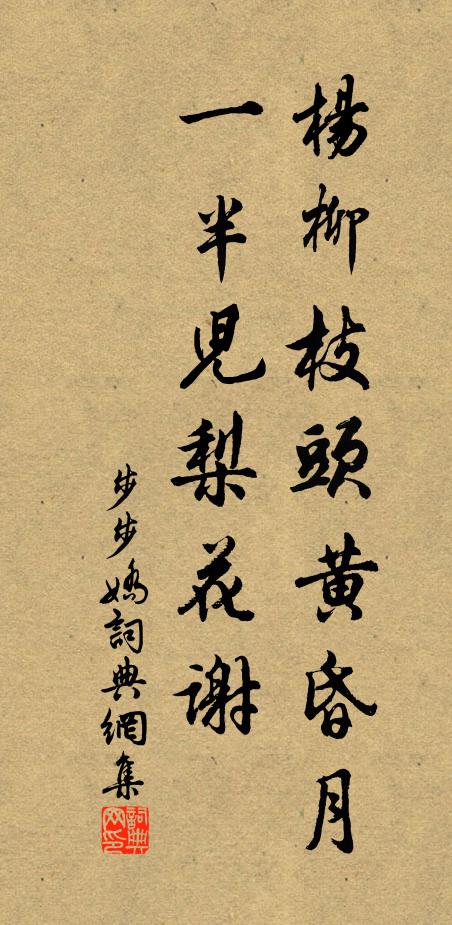 楊柳枝頭黃昏月
一半児梨花謝
步步嬌詞典網集
詞典
网印